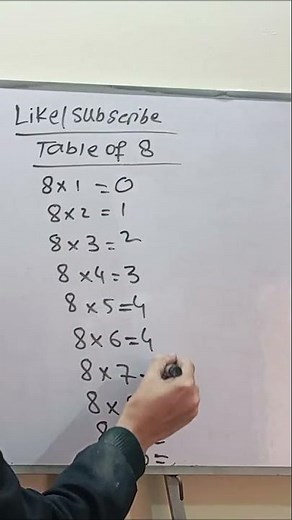 Like/Subscribe
Table of 8
8×1=0
8×2=1
8×3=2
8×4=3
8×5=4
8×6=4
8×7
8×
8
=